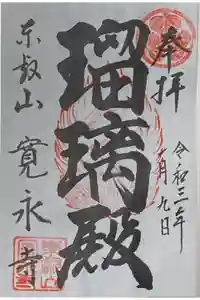 奉拝
令和三年
一月九日
瑠璃殿
东叡山
寛永寺